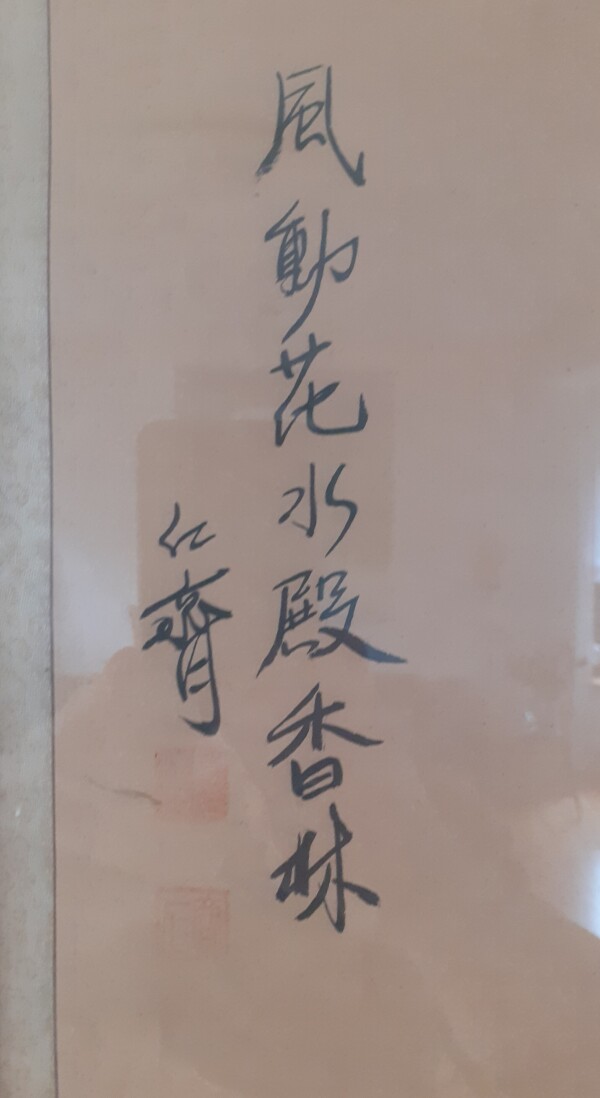 風動花水殿香林
仁齊